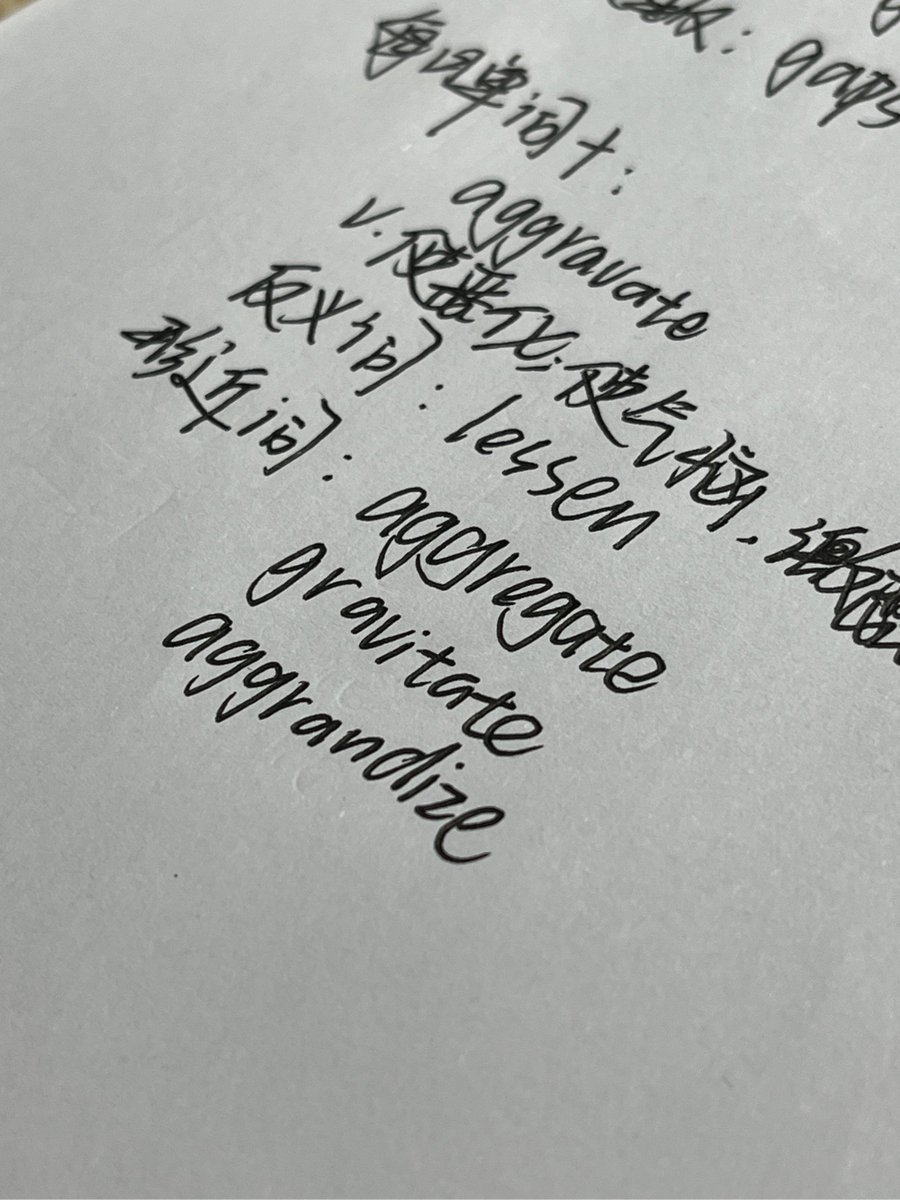 板: gaps
每日单词十:
aggravate
v. 使恶化; 使气恼.
反义词: lessen
形近词: aggregate
gravitate
aggrandize